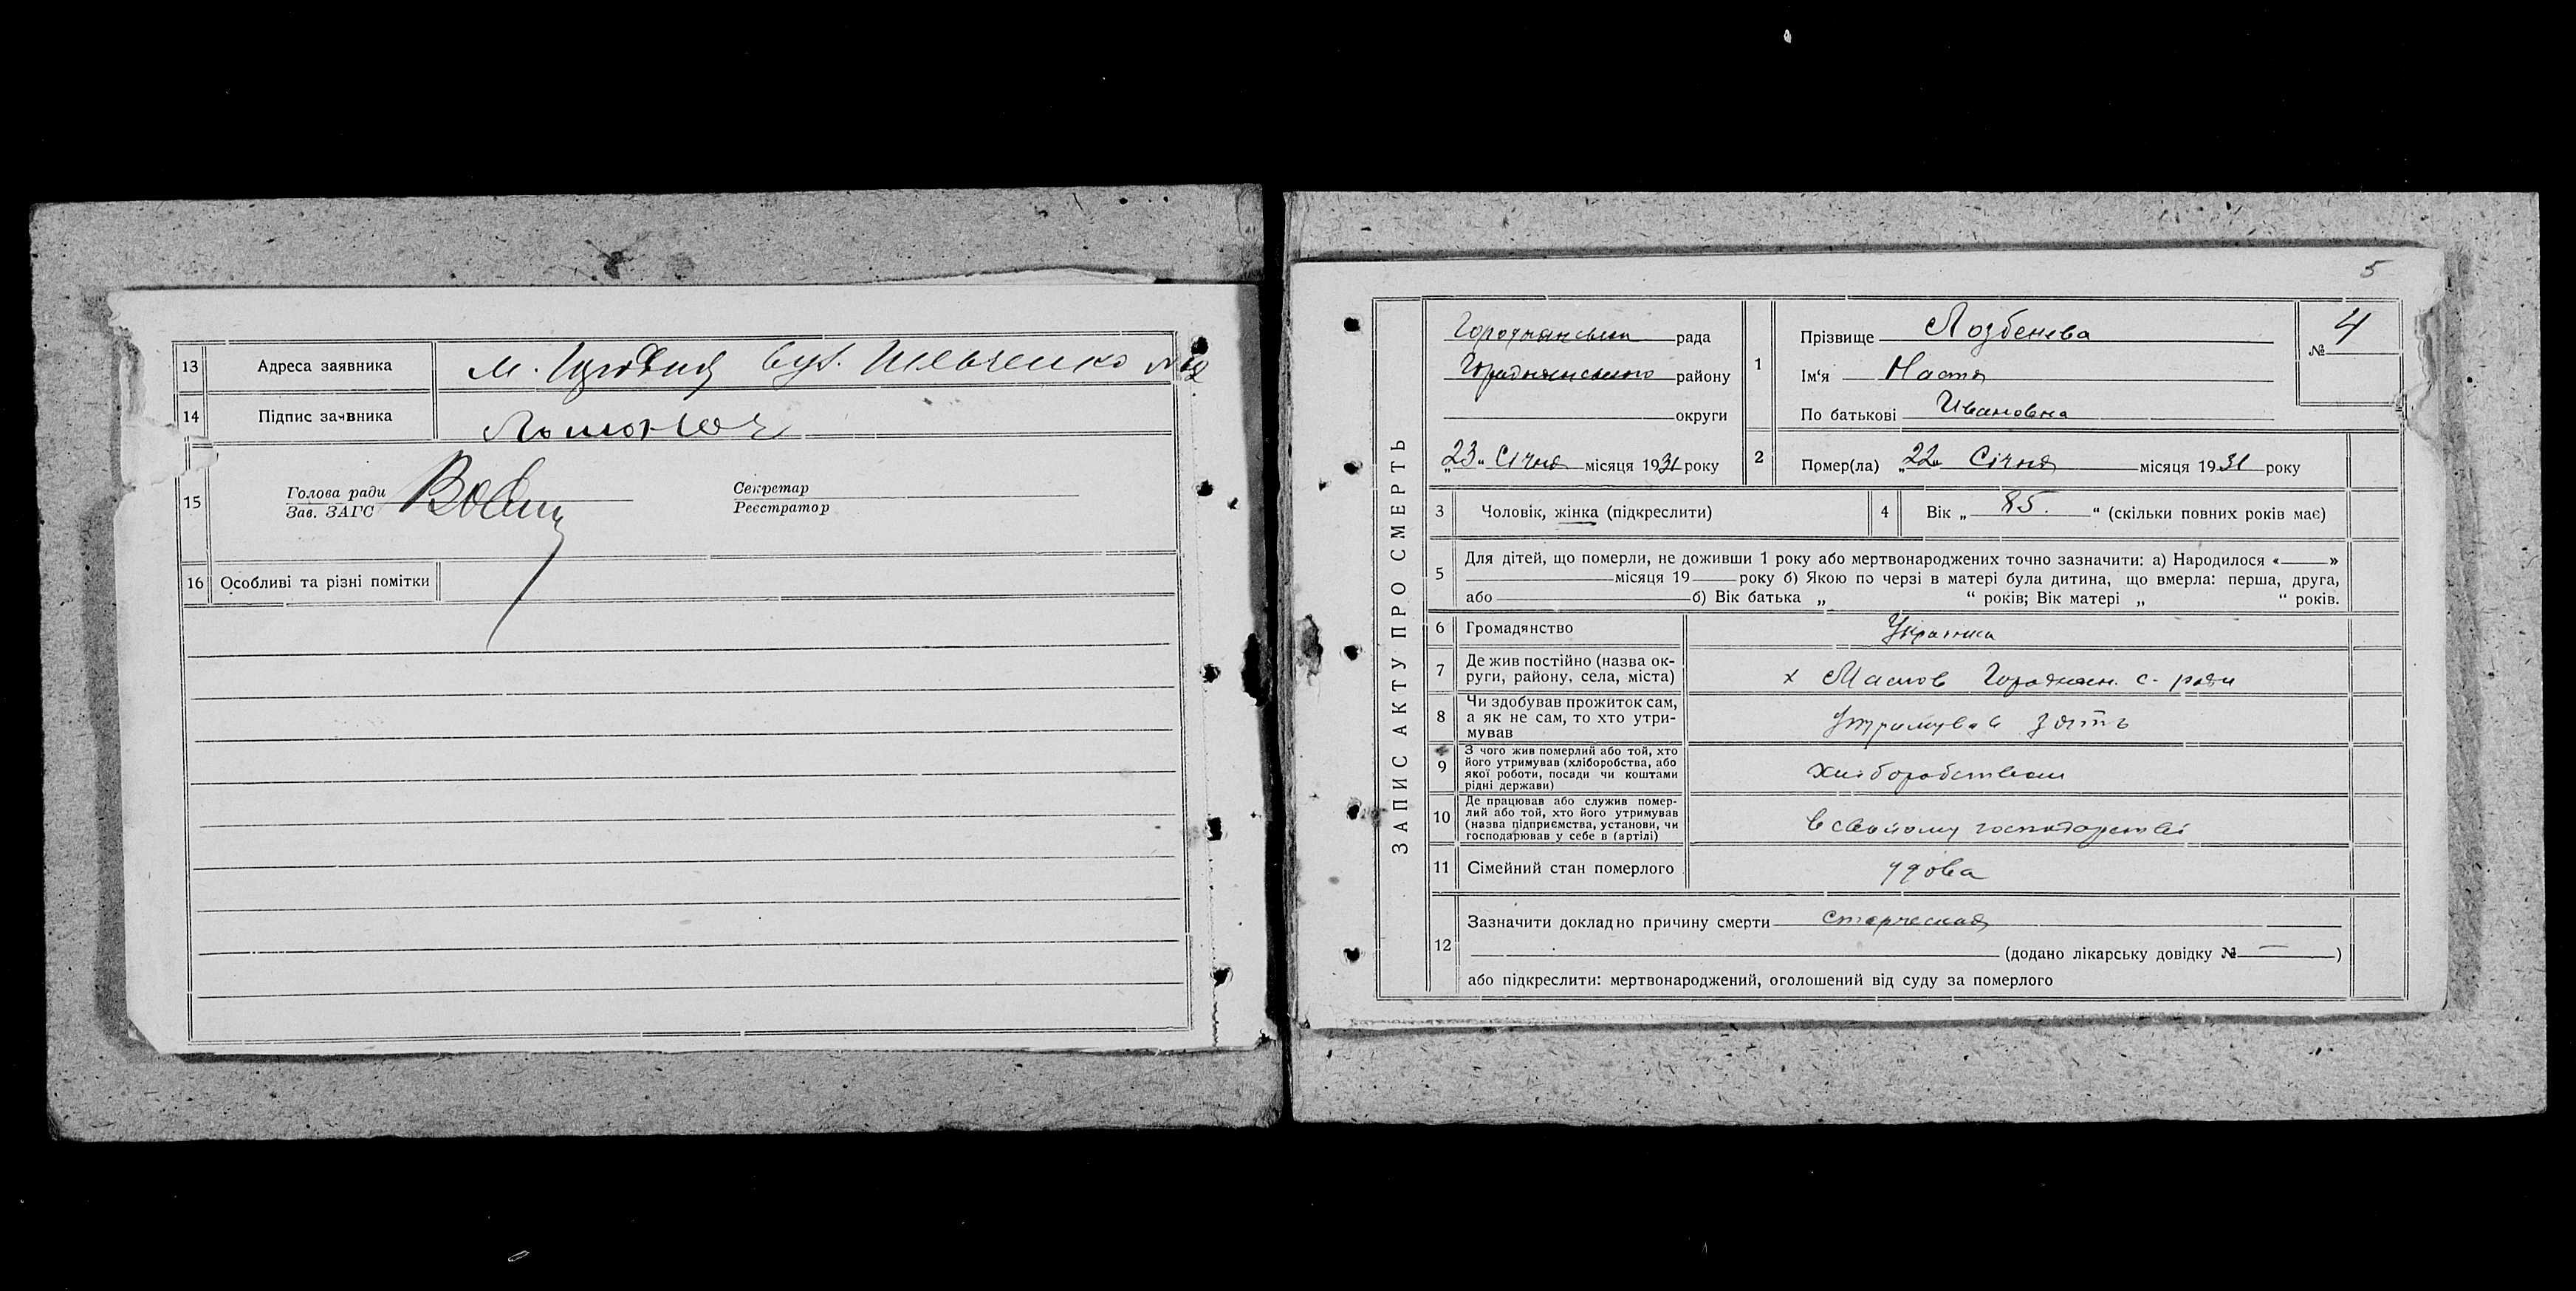 13 Адреса заявника м. Городня вул. Шевченко №
14 Підпис заявника
15 Голова ради Секретар
Зав. ЗАГС Реєстратор
16 Особливі та різні помітки
5
ЗАПИС АКТУ ПРО СМЕРТЬ
Городнянська рада
Городнянського району
округи
„23“ Січня місяця 1931 року
1 Прізвище Лозбенева
Ім‘я Настя
По батькові Ивановна
№ 4
2 Помер(ла) „22“ Січня місяця 1931 року
3 Чоловік, жінка (підкреслити)
4 Вік „ 85. “ (скільки повних років має)
5 Для дітей, що померли, не доживши 1 року або мертвонароджених точно зазначити: а) Народилося « »
місяця 19 року б) Якою по черзі в матері була дитина, що вмерла: перша, друга,
або б) Вік батька „ “ років; Вік матері „ “ років.
6 Громадянство Українка
7 Де жив постійно (назва ок-
руги, району, села, міста) х Городнян. с. ради
8 Чи здобував прожиток сам,
а як не сам, то хто утри-
мував Утримував зять
9 З чого жив померлий або той, хто
його утримував (хліборобства, або
якої роботи, посади чи коштами
рідні держави) хліборобством
10 Де працював або служив помер-
лий або той, хто його утримував
(назва підприємства, установи, чи
господарював у себе в (артілі) в свойому господарстві
11 Сімейний стан померлого удова
12 Зазначити докладно причину смерти старческая
(додано лікарську довідку № — )
або підкреслити: мертвонароджений, оголошений від суду за померлого